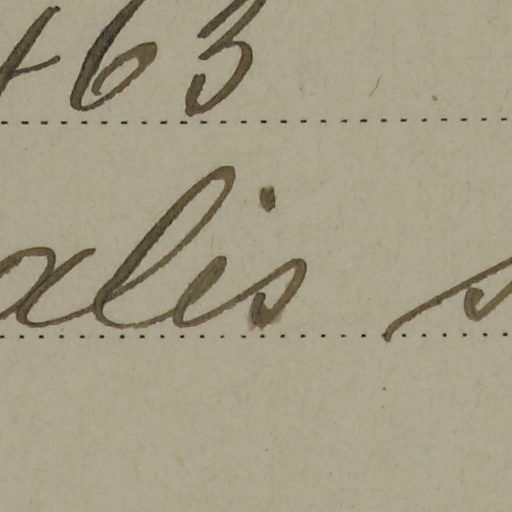 463
alis s